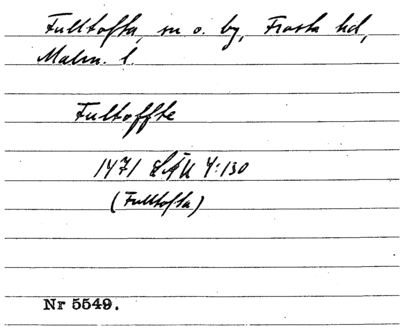 Fulltofta, sn o. by, Frosta hd,
Malm. l.
Fultoffte
1471 LÄU 4:130
(Fulltofta)
Nr 5549.